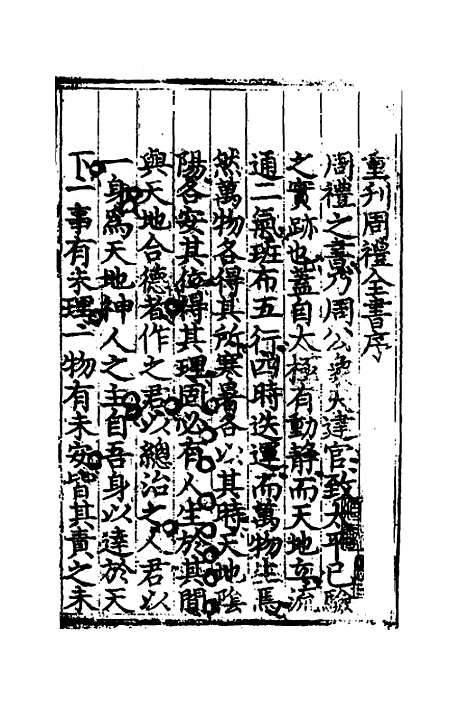 重刊周禮全書序
周禮之書乃周公奉天建官致太平已驗
之實跡也蓋自太極有動靜而天地立流
通二氣班布五行四時迭運而萬物生焉
然萬物各得其所寒暑各以其時天地陰
陽各安其位得其理固必有人生於其間
與天地合德者作之君以總治之人君以
一身為天地神人之主自吾身以達於天
下一事有未理一物有未安皆其責之未